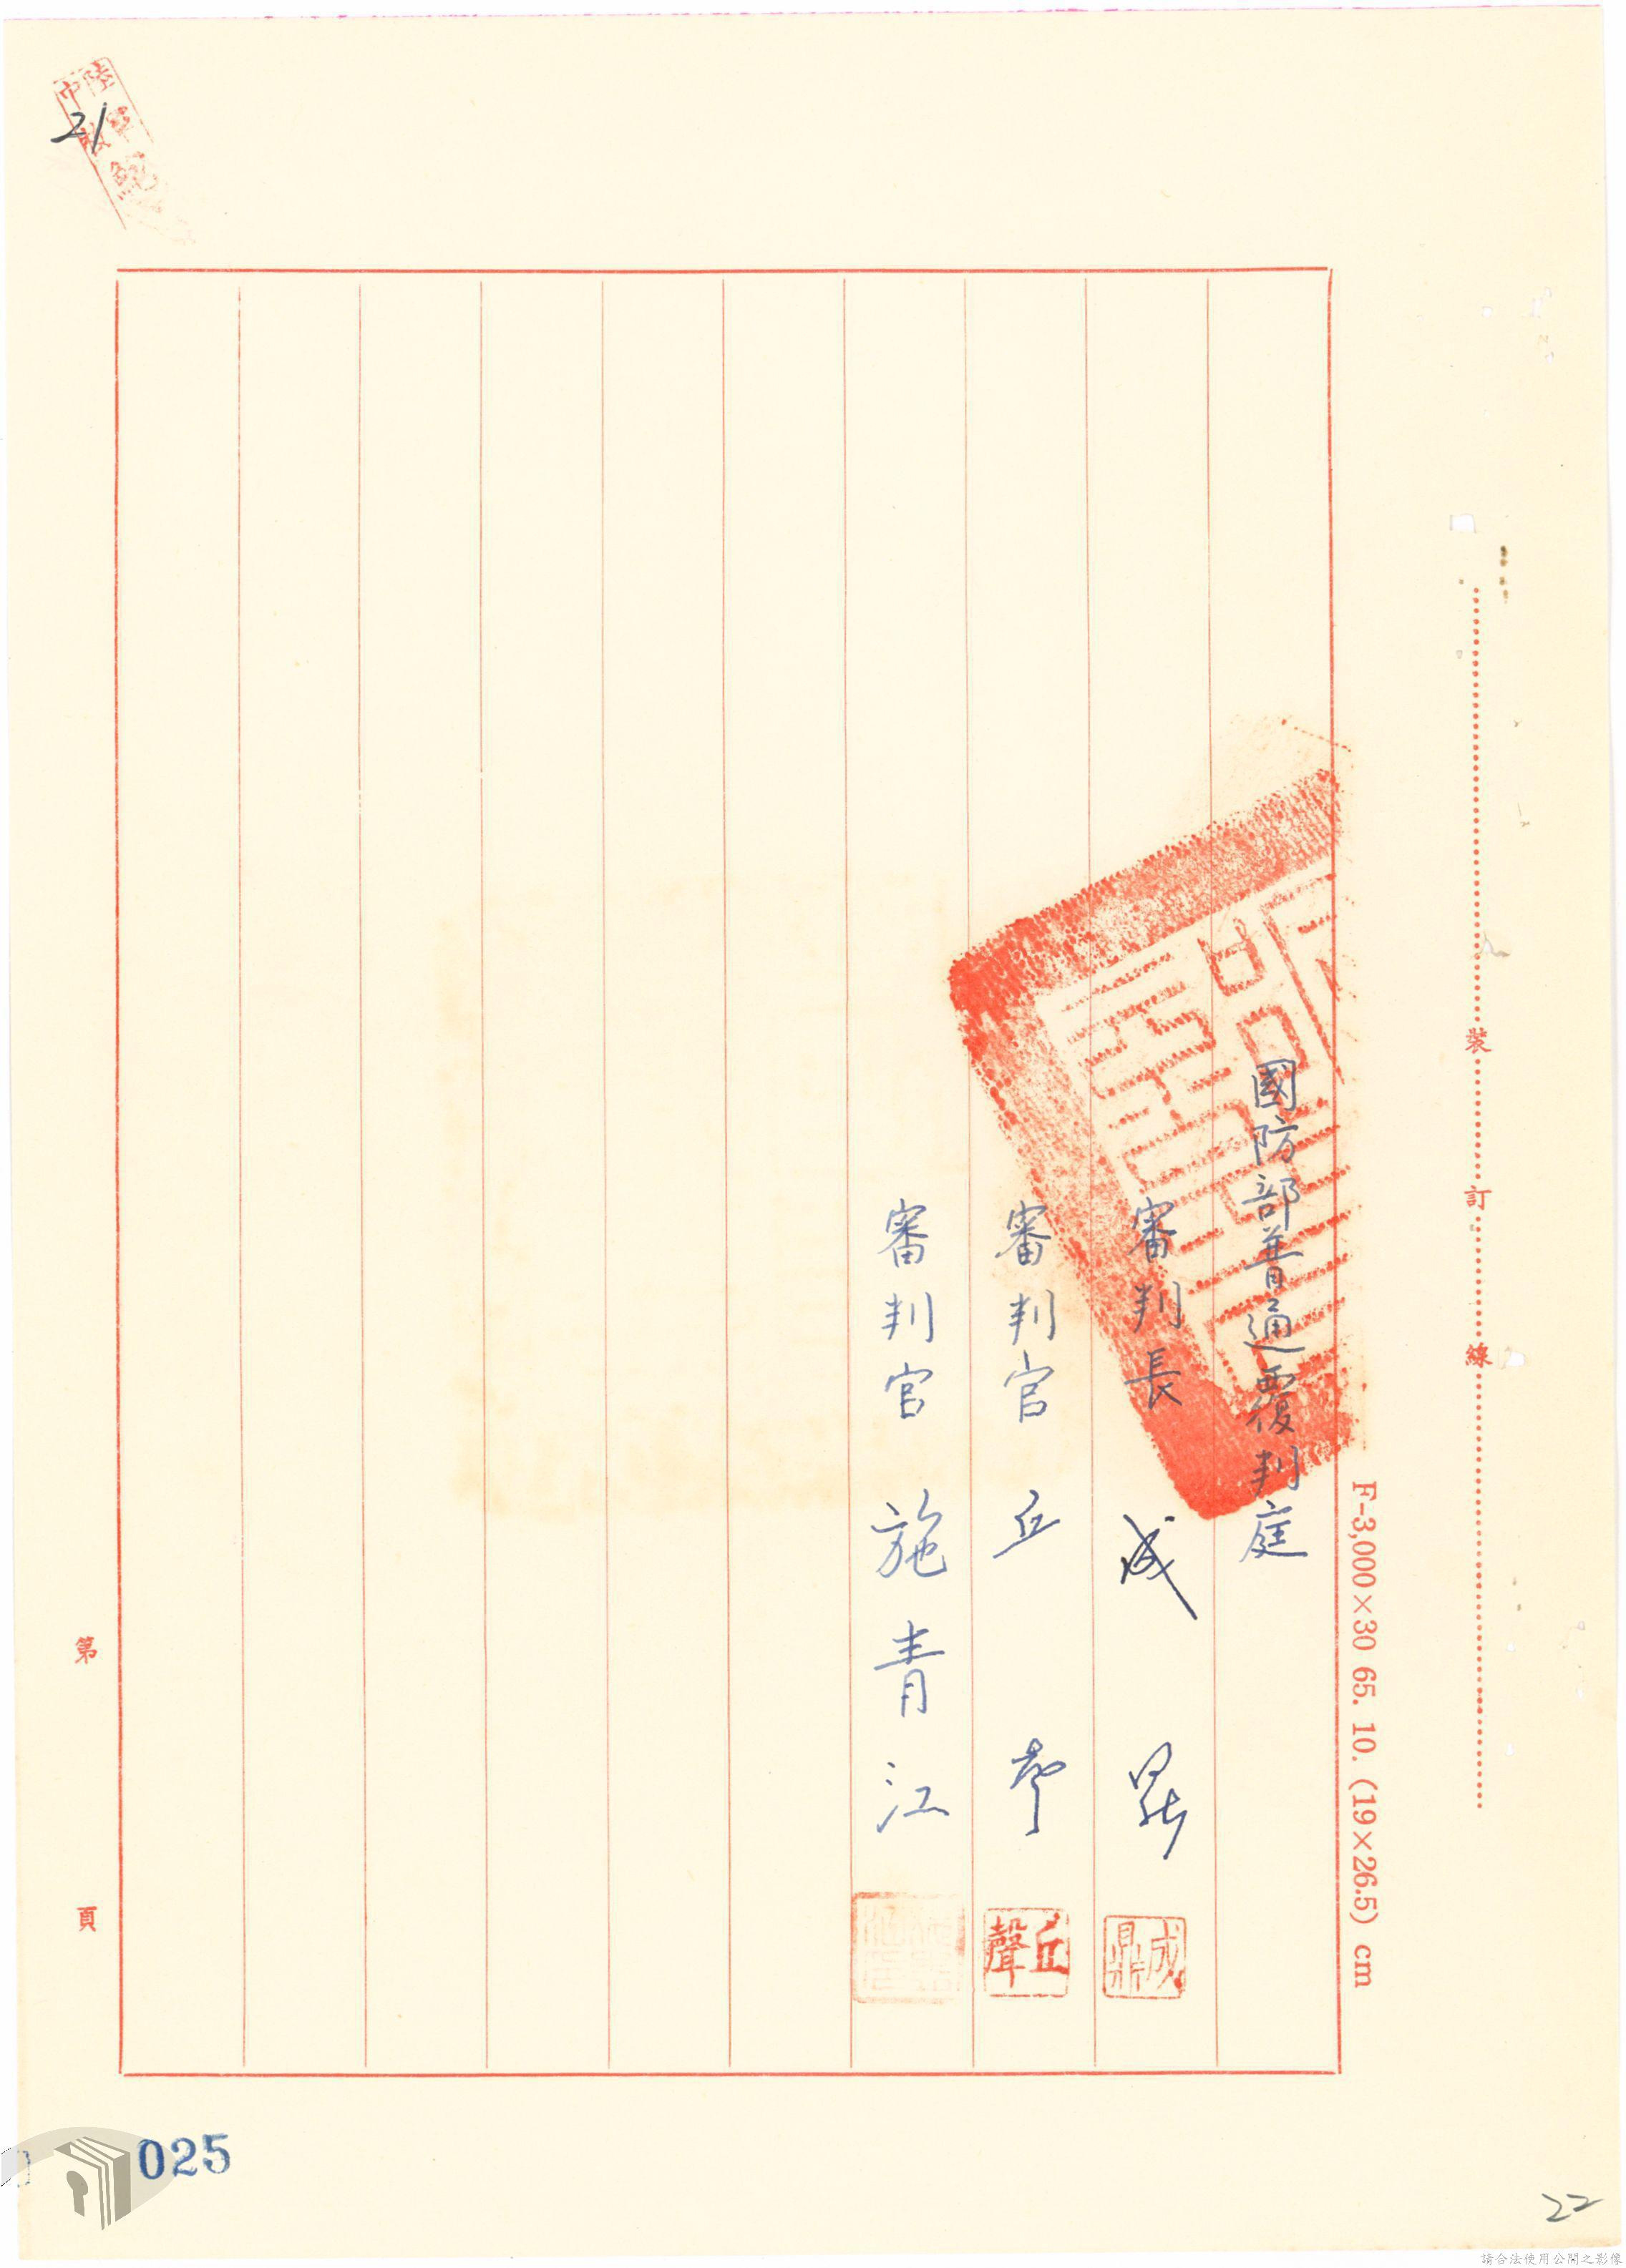 國防部普通覆判庭
審判長 成 鼎
成鼎
審判官 丘 聲
丘聲
審判官 施 青 江
裝 訂 線
F-3,000×30 65. 10. (19×26.5) cm
第 頁
21
025
22
請合法使用公開之影像